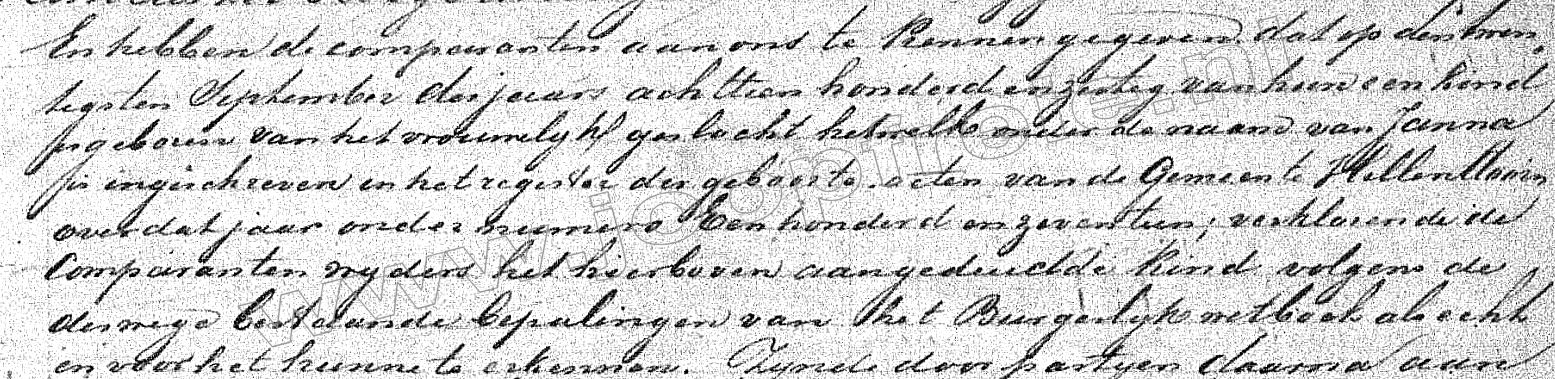 En hebben de comparanten aan ons te kennen gegeven, dat op den twin-
tigsten September des jaars achttien honderd en zestig van hun een kind
is geboren van het vrouwelijk geslacht hetwelk onder de naam van Janna
is ingeschreven in het register der geboorte acten van de Gemeente Hellendoorn
over dat jaar onder numero Een honderd en zeventien; verklarende de
Comparanten wyders het hierboven aangeduidde kind volgens de
deswege bestaande bepalingen van het Burgerlyk wetboek als echt
en voor het hunne te erkennen. Zynde door partyen daarna aan